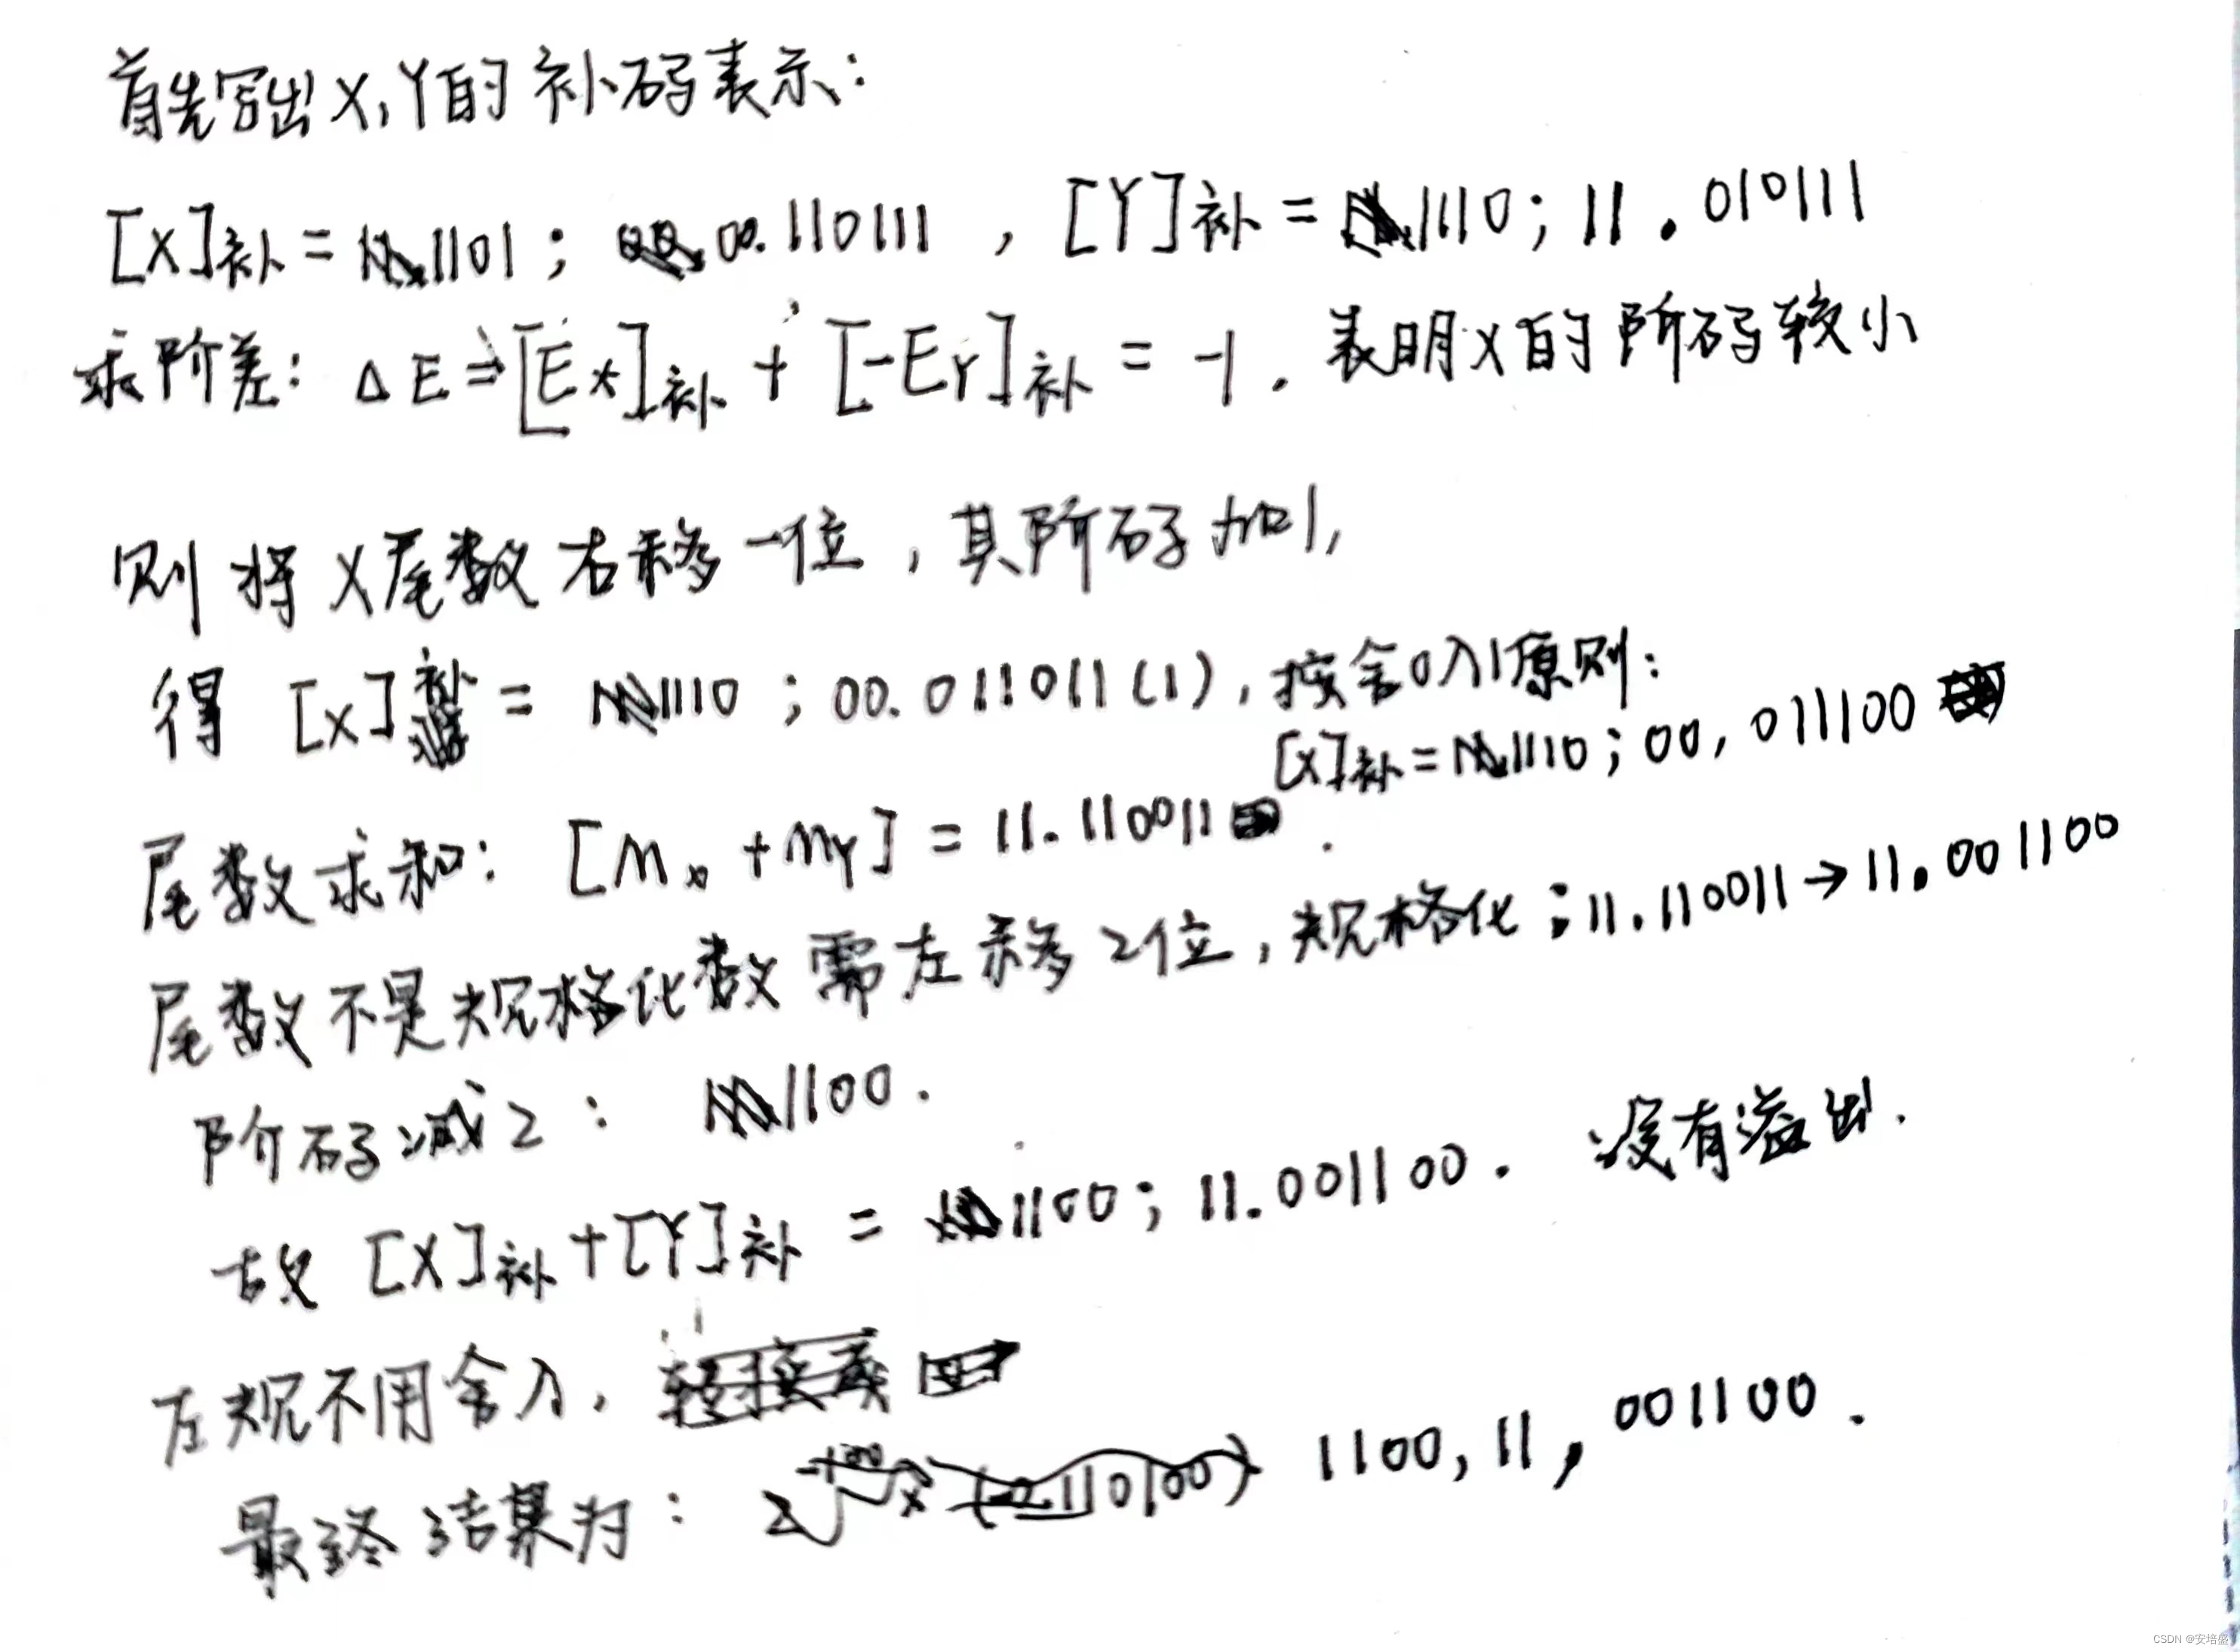 首先写出X,Y的补码表示:
[X]补 = 1101; 00.110111 , [Y]补 = 1110; 11.010111
求阶差: ΔE=[Ex]补 + [-EY]补 = -1. 表明X的阶码较小
则将X尾数右移一位,其阶码加1,
得 [X]补 = 1110 ; 00.011011(1), 按舍0入1原则:
[X]补=1110; 00,011100
尾数求和: [Mx +MY] = 11.110011.
尾数不是规格化数需左移2位,规格化;11.110011→11.001100
阶码减2: 1100.
故 [X]补+[Y]补 = 1100; 11.001100. 没有溢出.
左规不用舍入,
最终结果为: 1100, 11, 001100.
CSDN @安培盛